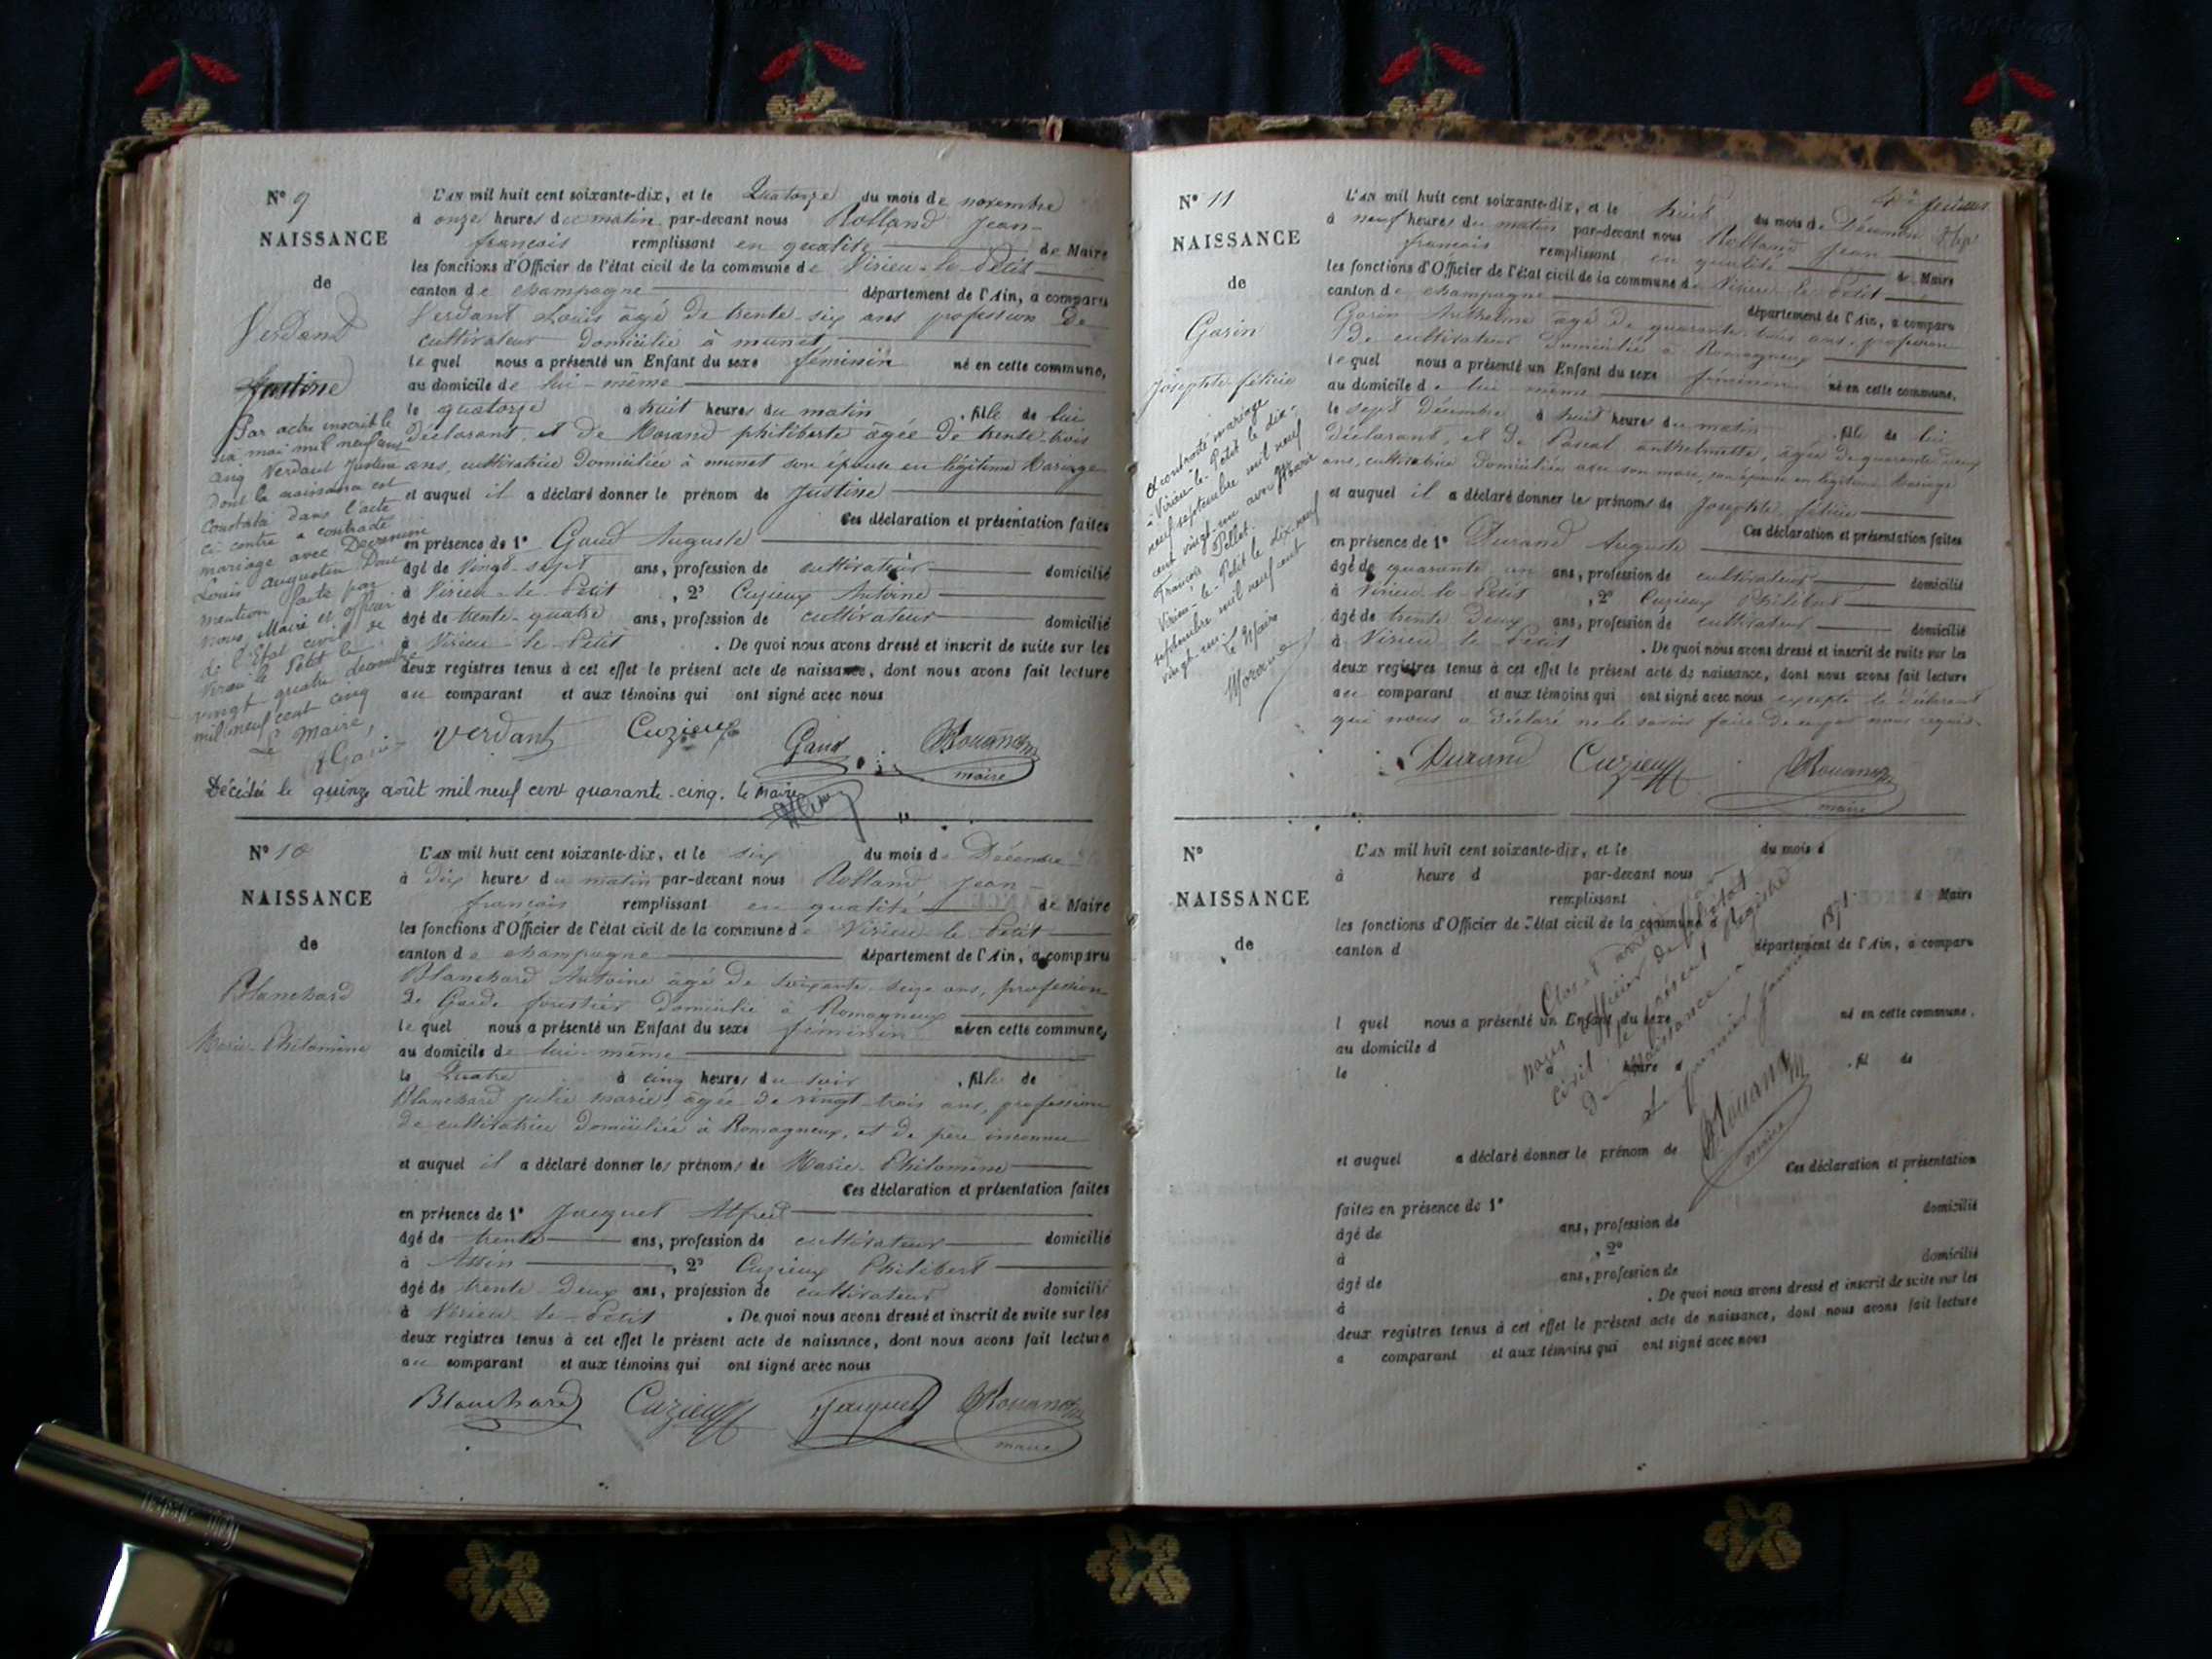 N° 9
NAISSANCE
de
Verdant
Justine
Par acte inscrit le
six mai mil neuf cent
cinq Verdant Justine
dont la naissance est
constatée dans l'acte
ci contre a contracté
mariage avec
Louis Augustin Dont
mention faite par
nous, Maire et officier
de l'Etat civil de
Virieu le Petit le
vingt quatre décembre
mil neuf cent cinq
Le Maire,
L'AN mil huit cent soixante-dix, et le Quatorze du mois de novembre
à onze heures du matin par-devant nous Rolland Jean-
françois remplissant en qualité de Maire
les fonctions d'Officier de l'état civil de la commune de Virieu-le-Petit
canton de champagne département de l'Ain, a comparu
Verdant Louis âgé de trente-six ans profession de
cultivateur domicilié à munet
le quel nous a présenté un Enfant du sexe féminin né en cette commune,
au domicile de lui-même
le quatorze à huit heures du matin , fille de lui
déclarant, et de Morand philiberte âgée de trente-trois
ans, cultivatrice domiciliée à munet son épouse en légitime Mariage
et auquel il a déclaré donner le prénom de Justine
Ces déclaration et présentation faites
en présence de 1° Gaud Auguste
âgé de vingt-sept ans, profession de cultivateur domicilié
à Virieu-le-Petit , 2° Cuzieux Antoine
âgé de trente-quatre ans, profession de cultivateur domicilié
à Virieu-le-Petit . De quoi nous avons dressé et inscrit de suite sur les
deux registres tenus à cet effet le présent acte de naissance, dont nous avons fait lecture
au comparant et aux témoins qui ont signé avec nous
Verdant Cuzieux Gaud
maire
Décédée le quinze août mil neuf cent quarante-cinq. le Maire
N° 10
NAISSANCE
de
Blanchard
Marie-Philomène
L'AN mil huit cent soixante-dix, et le six du mois de Décembre
à dix heures du matin par-devant nous Rolland Jean-
françois remplissant en qualité de Maire
les fonctions d'Officier de l'état civil de la commune de Virieu-le-Petit
canton de champagne département de l'Ain, a comparu
Blanchard Antoine âgé de soixante-seize ans, profession
de Garde forestier domicilié à Romagneux
le quel nous a présenté un Enfant du sexe féminin né en cette commune,
au domicile de lui-même
le Quatre à cinq heures du soir , fille de
Blanchard julie marie, âgée de vingt-trois ans, profession
de cultivatrice domiciliée à Romagneux, et de père inconnu
et auquel il a déclaré donner les prénoms de Marie-Philomène
Ces déclaration et présentation faites
en présence de 1° Jacquet Alfred
âgé de trente ans, profession de cultivateur domicilié
à Assin , 2° Cuzieux Philibert
âgé de trente deux ans, profession de cultivateur domicilié
à Virieu-le-Petit . De quoi nous avons dressé et inscrit de suite sur les
deux registres tenus à cet effet le présent acte de naissance, dont nous avons fait lecture
au comparant et aux témoins qui ont signé avec nous
Blanchard Cuzieux Jacquet
maire
N° 11
NAISSANCE
de
Garin
Josephte félicie
A contracté mariage
à Virieu-le-Petit le dix-
neuf septembre mil neuf
cent vingt-un avec Marie
François Pellet.
Virieu-le-Petit le dix-neuf
septembre mil neuf cent
vingt-un. le Maire
L'AN mil huit cent soixante-dix, et le huit du mois de Décembre
à neuf heures du matin par-devant nous Rolland Jean
françois remplissant en qualité de Maire
les fonctions d'Officier de l'état civil de la commune de Virieu-le-Petit
canton de champagne département de l'Ain, a comparu
Garin Anthelme âgé de quarante-trois ans, profession
de cultivateur domicilié à Romagneux
le quel nous a présenté un Enfant du sexe féminin né en cette commune,
au domicile de lui même
le sept Décembre à huit heures du matin , fille de lui
déclarant, et de Pascal anthelmette, âgée de quarante deux
ans, cultivatrice domiciliée avec son mari, son épouse en légitime Mariage
et auquel il a déclaré donner les prénoms de Josephte félicie
Ces déclaration et présentation faites
en présence de 1° Durand Auguste
âgé de quarante un ans, profession de cultivateur domicilié
à Virieu-le-Petit , 2° Cuzieux Philibert
âgé de trente deux ans, profession de cultivateur domicilié
à Virieu-le-Petit . De quoi nous avons dressé et inscrit de suite sur les
deux registres tenus à cet effet le présent acte de naissance, dont nous avons fait lecture
au comparant et aux témoins qui ont signé avec nous excepté le déclarant
qui nous a déclaré ne le savoir faire de ce par nous requis.
Durand Cuzieux
maire
N°
NAISSANCE
de
L'AN mil huit cent soixante-dix, et le du mois d
à heure d par-devant nous
remplissant d Maire
les fonctions d'Officier de l'état civil de la commune d
canton d département de l'Ain, a comparu
l quel nous a présenté un Enfant du sexe né en cette commune,
au domicile d
le à heure d , fil de
et auquel a déclaré donner le prénom de
Ces déclaration et présentation
faites en présence de 1°
âgé de ans, profession de domicilié
à , 2°
âgé de ans, profession de domicilié
à . De quoi nous avons dressé et inscrit de suite sur les
deux registres tenus à cet effet le présent acte de naissance, dont nous avons fait lecture
a comparant et aux témoins qui ont signé avec nous
Clos et arrêté par
nous officier de l'état
civil, le présent Registre
de Naissance
Le premier janvier 1871
maire